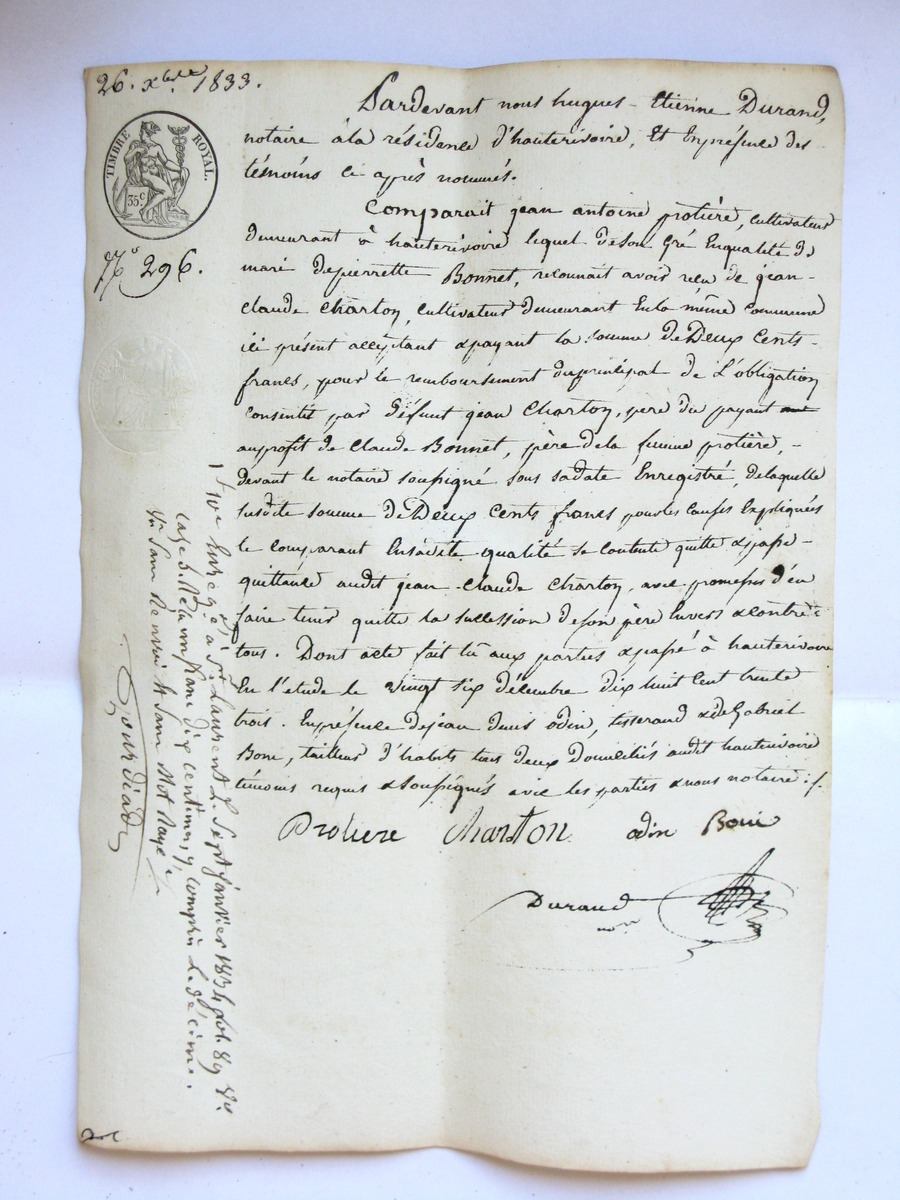 26. xbre. 1833.
TIMBRE ROYAL.
35.c
No 296.
Pardevant nous hugues-Etienne Durand,
notaire à la résidence d'hauterivoire, Et En présence des
témoins ci après nommés.
Comparait jean antoine protière, cultivateur
demeurant à hauterivoire lequel de son gré En qualité de
mari de pierrette Bonnet, reconnait avoir reçu de jean-
claude Charton, cultivateur demeurant En la même commune
ici présent acceptant & payant la somme de Deux Cents-
francs, pour le remboursement du principal de L'obligation
Consentie par défunt jean Charton, père du payant
au profit de Claude Bonnet, père de la femme protière, -
devant le notaire soussigné sous sa date Enregistré, de laquelle
susdite somme de Deux Cents francs pour les causes Expliquées
le comparant En sadite qualité se contente quitte & passe
quittance audit jean-Claude Charton, avec promesse d'en
faire tenir quitte la succession de son père Envers & contre
tous. Dont acte fait lû aux parties & passé à hauterivoire
En l'étude le vingt six décembre dix huit cent trente
trois. En présence de jean denis odin, tisserand & de Gabriel
Boni, tailleur d'habits tous deux Domiciliés audit hauterivoire
témoins requis & soussignés avec les parties & nous notaire ./.
Protiere Charton odin Boni
Durand
nore
Enregé à St Laurent L. Sept janvier 1834 fol. 89 vo.
case 5. Reçu un franc dix centimes, y compris L. décime.
Sans Renvoi & Sans Mot Rayé